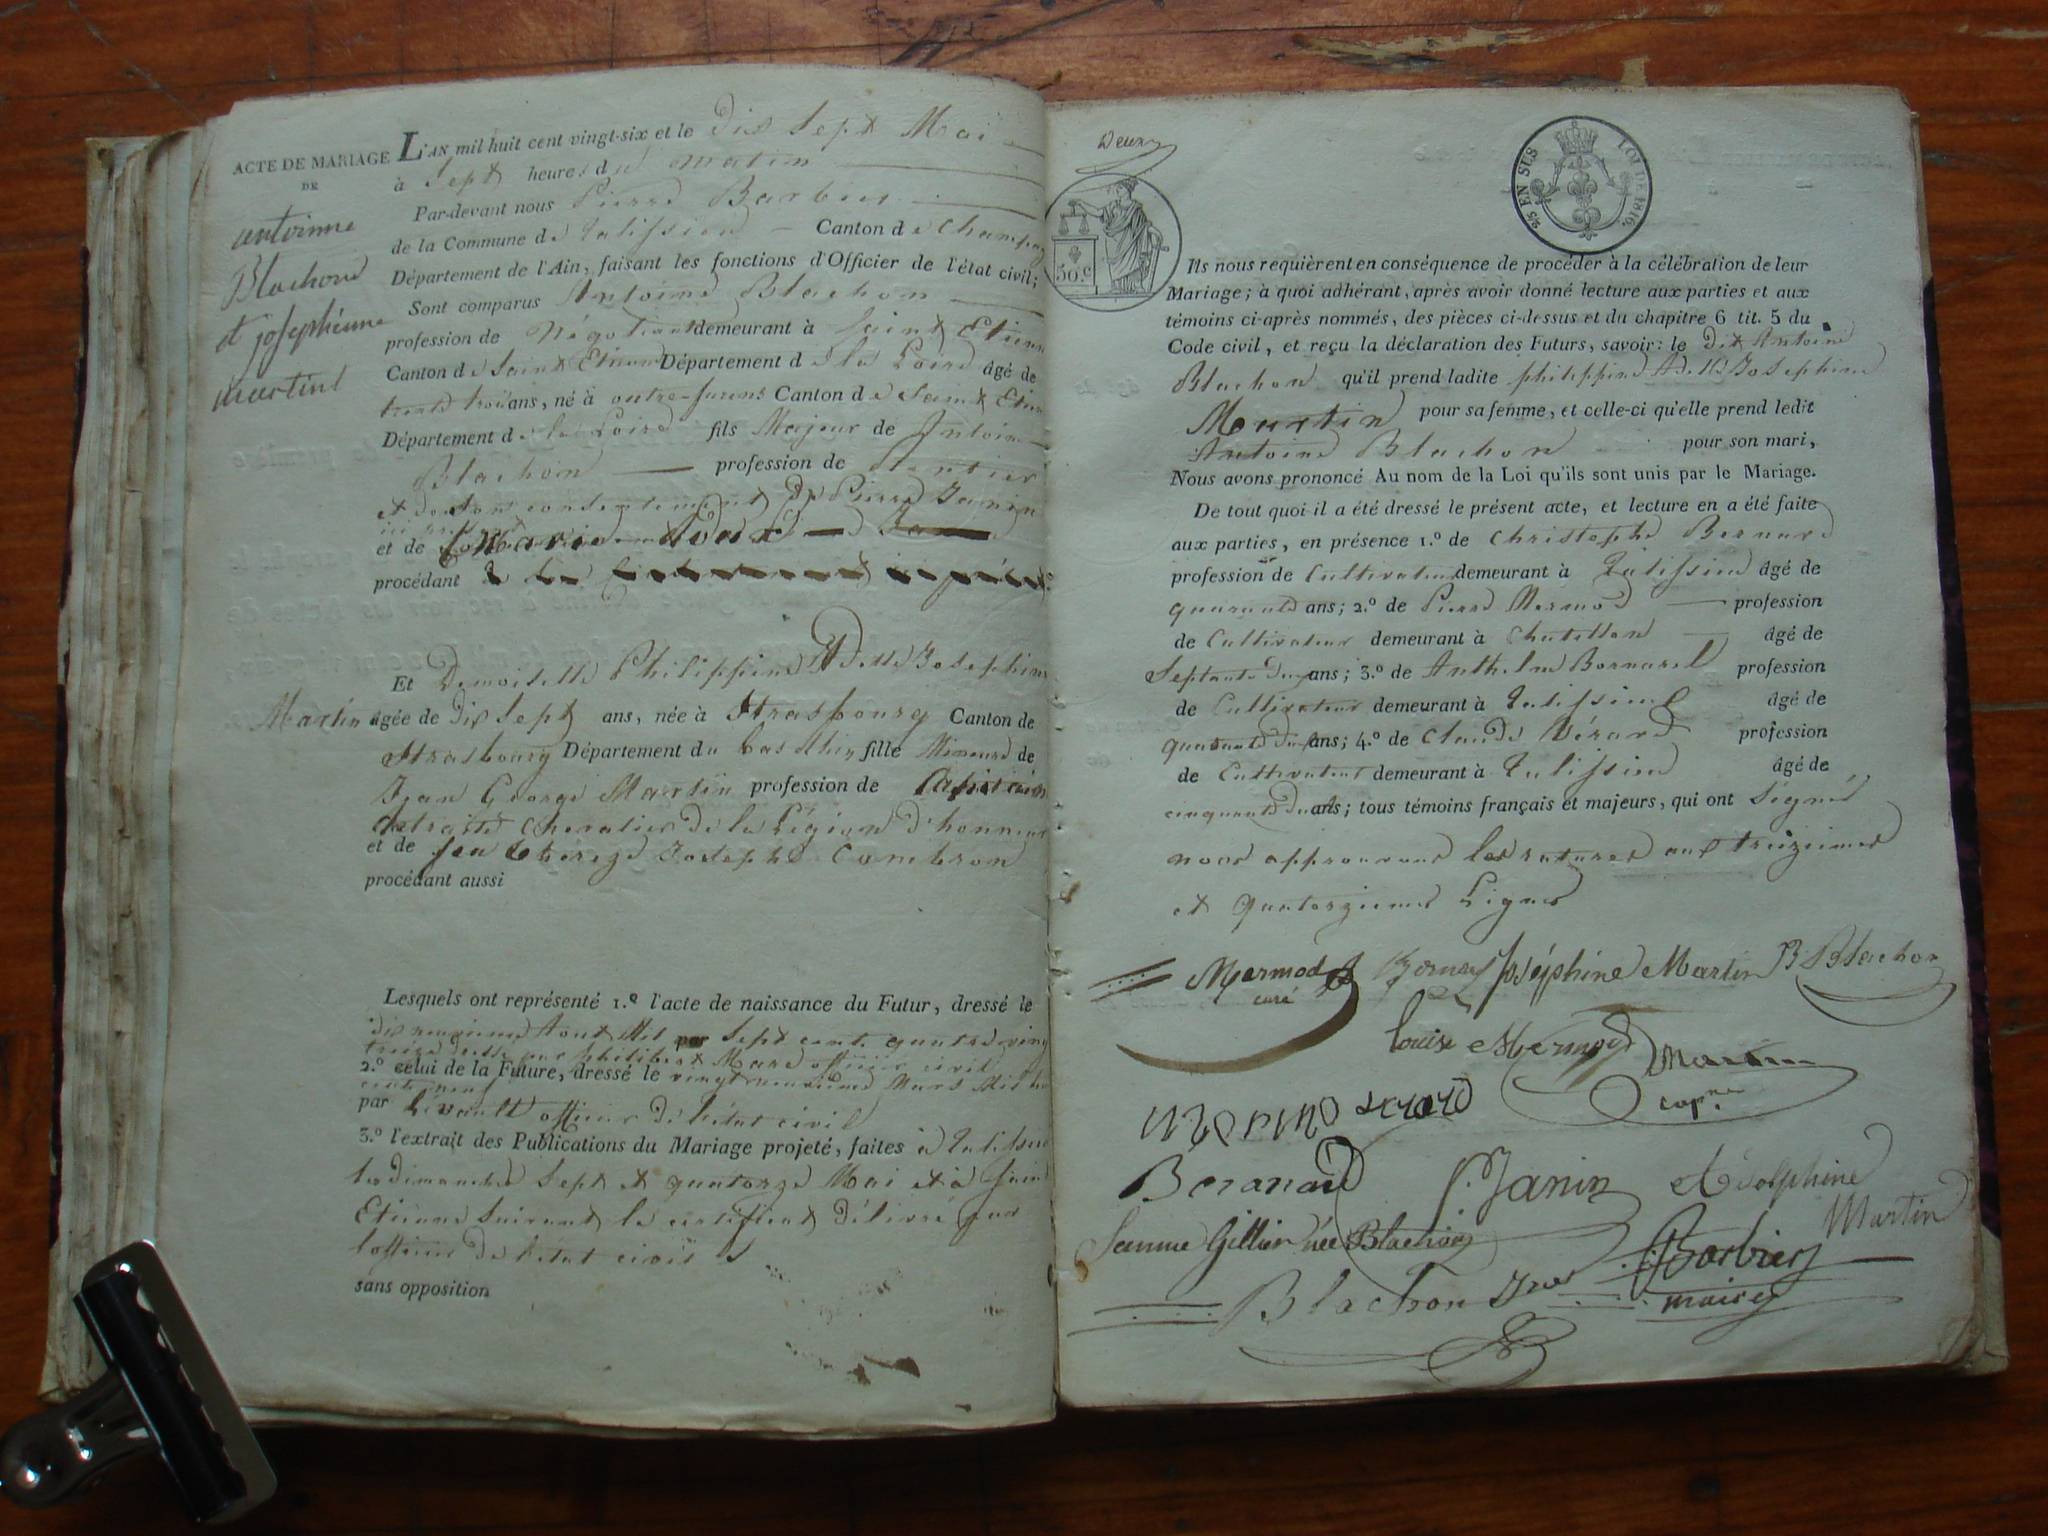 ACTE DE MARIAGE
DE
antoinne
Blachond
et josephinne
martinl
L'AN mil huit cent vingt-six et le dix Sept Mai
à Sept heures du matin
Par-devant nous Pierre Barbier
de la Commune de Talissieu Canton de Champag
Département de l'Ain, faisant les fonctions d'Officier de l'état civil;
Sont comparus Antoine Blachon
profession de Négotiant demeurant à Saint Etienn
Canton de Saint Etienne Département de la Loire âgé de
trente trois ans, né à outre-furens Canton de Saint Etien
Département de la Loire fils Majeur de Antoine
Blachon profession de Rentier
et de son consentement Pierre Janin
ici présent
et de Marie
procédant
Et Demoiselle Philippine Adelle Josephine
Martin âgée de dix Sept ans, née à Strasbourg Canton de
Strasbourg Département du bas Rhin fille Mineure de
Jean George Martin profession de Capitaine
Retraité Chevalier de la Légion d'honneur
et de feu Thérèze Josephe Combron
procédant aussi
Lesquels ont représenté 1.º l'acte de naissance du Futur, dressé le
dix neuvieme Aout Mil sept cents quatre ving
treize par philibert Mare officier civil
2.º celui de la Future, dressé le vingt neuvieme Mars Mil hu
cent neuf
par Levrault officier de l'état civil
3.º l'extrait des Publications du Mariage projeté, faites à Talissieu
les dimanches Sept et quatorze Mai et à Saint
Etienne Suivant le certificat délivré par
l'officier de l'état civil
sans opposition
Deux
50.c
2/5 EN SUS LOI DE 1816.
Ils nous requièrent en conséquence de procéder à la célébration de leur
Mariage; à quoi adhérant, après avoir donné lecture aux parties et aux
témoins ci-après nommés, des pièces ci-dessus et du chapitre 6 tit. 5 du
Code civil, et reçu la déclaration des Futurs, savoir: le dit Antoine
Blachon qu'il prend ladite philippine Adelle Josephine
Martin pour sa femme, et celle-ci qu'elle prend ledit
Antoine Blachon pour son mari,
Nous avons prononcé Au nom de la Loi qu'ils sont unis par le Mariage.
De tout quoi il a été dressé le présent acte, et lecture en a été faite
aux parties, en présence 1.º de Christophe Bernard
profession de Cultivateur demeurant à Talissieu âgé de
quarante ans; 2.º de Pierre Mermod profession
de Cultivateur demeurant à Chatillon âgé de
Septante deux ans; 3.º de Anthelme Bornarel profession
de Cultivateur demeurant à Talissieu âgé de
quarante deux ans; 4.º de Claude Vérard profession
de Cultivateur demeurant à Talissieu âgé de
cinquante deux ans; tous témoins français et majeurs, qui ont Signés
nous approuvons les ratures aux treizieme
et quatorzieme Lignes
Mermod Joséphine Martin B Blachon
curé
Louise Mermod Martin
capne
Berenard P. Janin Adolphine
Martin
Jeanne Gillier née Blachon
Blachon Barbier
maire